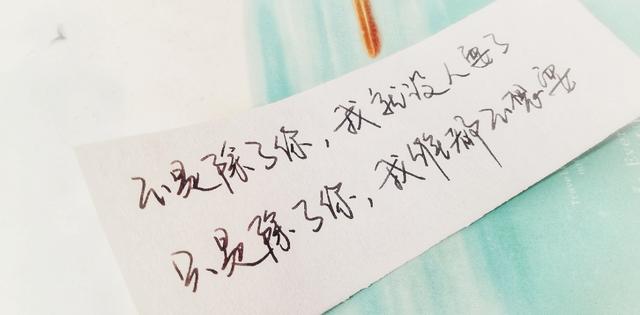 不是除了你，我就没人要了
只是除了你，我谁都不想要